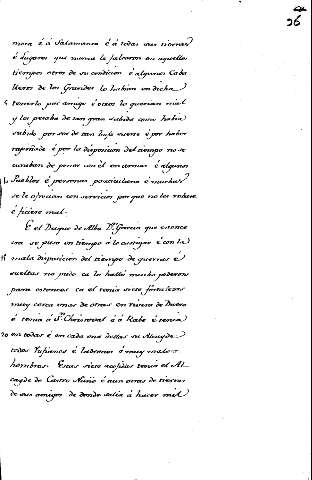 26
mora é á Salamanca é á todas sus tierras
é Lugares que nunca le faltaron en aquellos
tiempos otros de su condicion é algunos Caba
lleros de los Grandes lo habian en dicha
5 tenerlo por amigo é otros lo querian mal
y les pesaba de tan gran subida como habia
subido por ser de tan baja suerte é por haber
é por la disposicion del tiempo no se
curaban de ponerse con él en armas é algunos
10 Pueblos é personas é muchas
se le ofrecian con servicios por que no les robase
é ficiese mal.
E el Duque de Alba Dn. Garcia que entonce
era se puso un tiempo á lo é con la
15 mala disposicion del tiempo de guerras é
sueltas no pudo ca lo halló mucho poderoso
para entonces ca él tenia siete fortalezas
muy cerca unas de otras en rivera de Duero
é tenia á Sn. Christoval é á Kabe é tenia
20 en todas é en cada una dellas su Alcayde
todos Rufianes é ladrones é muy malos
hombres. Estas siete acogidas tenia el Al
cayde de Castro Nuño é aun otras de tierras
de sus amigos de donde salia á hacer mal